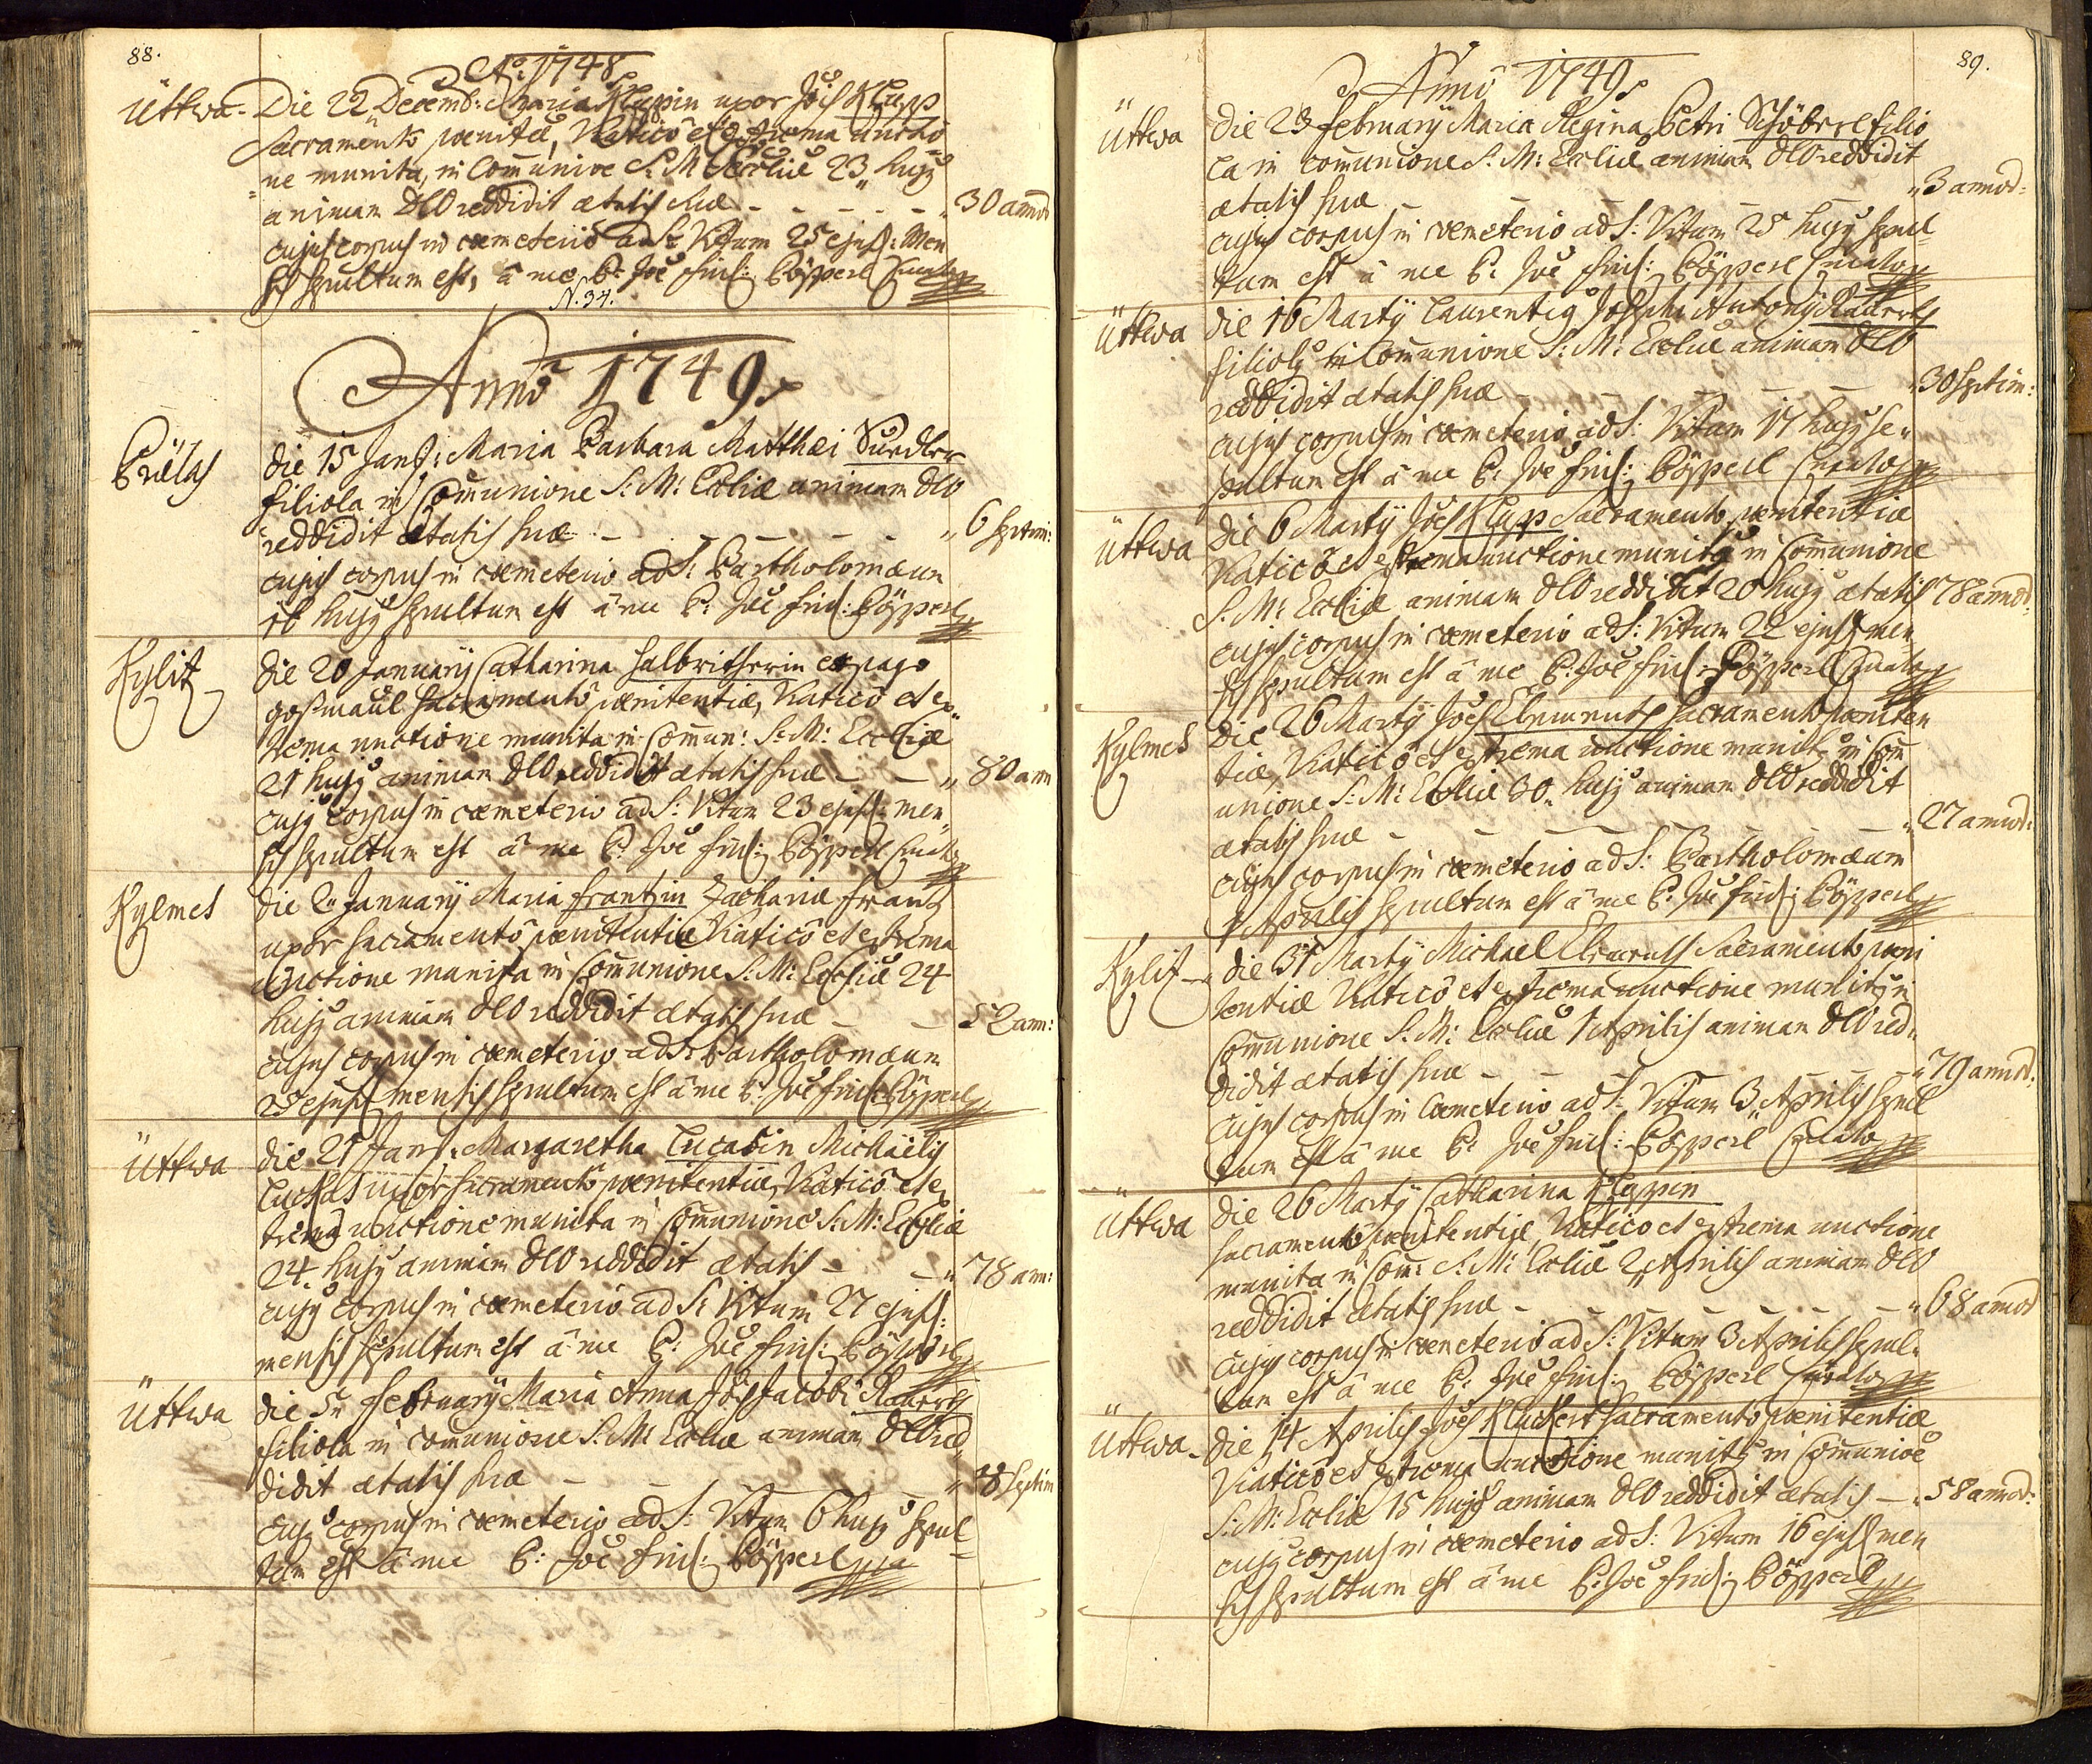 88.
Aō: 1748
Üttwa - Die 22 Decemb: Maria Klappin uxor Joīs Klapp
Sacramento pœnitēæ, Viatico et extrema unctio
ne munita, in Communioē S: M: Eccliæ 23 hujꝰ
animam DEO reddidit ætatis suæ - - - - - 30 annor̄
cujus corpus in cœmeterio ad S: Vitum 25 ejusd: Men
sis sepultum est, à me P: Joē Frid: Pöpperl Curato
N. 34.
Anno 1749.
Prölas
die 15 Jan: Maria Barbara Matthæi Siedler
filiola in Communione S: M: Eccliæ animam DEO
reddidit ætatis suæ - - - - - 6 septim:
cujus corpus in cœmeterio ad S: Bartholomæum
16 hujꝰ sepultum est à me P: Joē Frid: Pöpperl
Kylitz
die 20 January Catharina Halbritherin ex pago
Gosmaül Sacramento pœnitentiæ, Viatico et ex-
trema unctione munita in Commun: S: M: Eccliæ
21 hujꝰ animam DEO reddidit ætatis suæ - - 80 ann
cujꝰ corpus in cœmeterio ad S: Vitum 23 ejusd: men
sis sepultum est à me P: Joē Frid: Pöpperl Curato
Kylmes
die 2 January Maria Frantzin Zachariæ Frantz
uxor Sacramento pœnitentiæ Viatico et extrema
Unctione munita in Communione S: M: Eccliæ 24
hujꝰ animam DEO reddidit ætatis suæ - - 52 ann:
cujus corpus in cœmeterio ad S: Bartholomæum
25 ejusd mensis sepultum est à me P: Joē Frid: Pöpperl
Üttwa
die 21 Jan: Margaretha Lucasin Michäelis
Luckas uxor Sacramento pœnitentiæ, Viatico et ex
trema unctione munita in Communione S: M: Eccliæ
24 hujꝰ animam DEO reddidit ætatis - - 78 ann:
cujꝰ corpus in cœmeterio ad S: Vitum 27 ejusd:
mensis sepultum est à me P: Joē Frid: Pöpperl
Üttwa
die 5 February Maria Anna Jois Jacobi
filiola in communione S: M: Eccliæ animam DEO red
didit ætatis suæ - - septim
cujꝰ corpus in cœmeterio ad S: Vitum 6 hujꝰ sepul=
tum est à me P: Joē Frid: Pöpperl
89.
Anno 1749.
Üttwa
die 23 February Maria Regina Petri Schöberl filio
la in communione S: M: Eccliæ animam DEO reddidit
ætatis suæ - - - 3 annor:
cujus corpus in cœmeterio ad S: Vitum 25 hujꝰ sepul=
tum est à me P: Joē Frid: Pöpperl Curato
Üttwa
die 16 Marty Laurentiꝰ Josephi Antony
filiolꝰ in Communione S: M: Eccliæ animam DEO
reddidit ætatis suæ - - - 30 septim:
cujus corpus in cœmeterio ad S: Vitum 17 hujꝰ se-
pultum est à me P: Joē Frid: Pöpperl Curato
Üttwa
die 6 Marty Joēs Klapp Sacramento pœnitentiæ
Viatico et extrema unctione munitꝰ in Communione
S: M: Eccliæ animam DEO reddidit 20 hujꝰ ætatis 78 annor:
cujus corpus in cœmeterio ad S: Vitum 22 ejusd men
sis sepultum est à me P: Joē Frid: Pöpperl Curato
Kylmes
die 26 Marty Joēs Sacramento pœniten
tiæ, Viatico et extrema unctione munitꝰ in Com
unione S: M: Eccliæ 30 hujꝰ animam DEO reddidit
ætatis suæ - - - 27 annor:
cujus corpus in cœmeterio ad S: Bartholomæum
1 Aprilis sepultum est à me P: Joē Frid: Pöpperl
Kylitz
die 31 Marty Michael Sacramento pœni
tentiæ Viatico et extrema unctione munitꝰ in
Communione S: M: Eccliæ 1 Aprilis animam DEO red-
didit ætatis suæ - - - 79 annor:
cujus corpus in Cœmeterio ad S: Vitum 3 Aprilis sepul
tum est à me P: Joē Frid: Pöpperl Curato
Üttwa
die 26 Marty Catharina Klappin
Sacramento pœnitentiæ, Viatico et extrema unctione
munita in Com: S: M: Eccliæ 2 Aprilis animam DEO
reddidit ætatis suæ - - - 68 annor
cujus corpus in cœmeterio ad S: Vitum 3 Aprilis sepul-
tum est à me P: Joē Frid: Pöpperl Curato
Üttwa -
die 14 Aprilis Joēs Kluckert Sacramento pœnitentiæ
Viatico et extrema unctione munitꝰ in Communioē
S: M: Eccliæ 15 hujꝰ animam DEO reddidit ætatis - 58 annor:
cujꝰ corpus in cœmeterio ad S: Vitum 16 ejusd men
sis sepultum est à me P: Joē Frid: Pöpperl